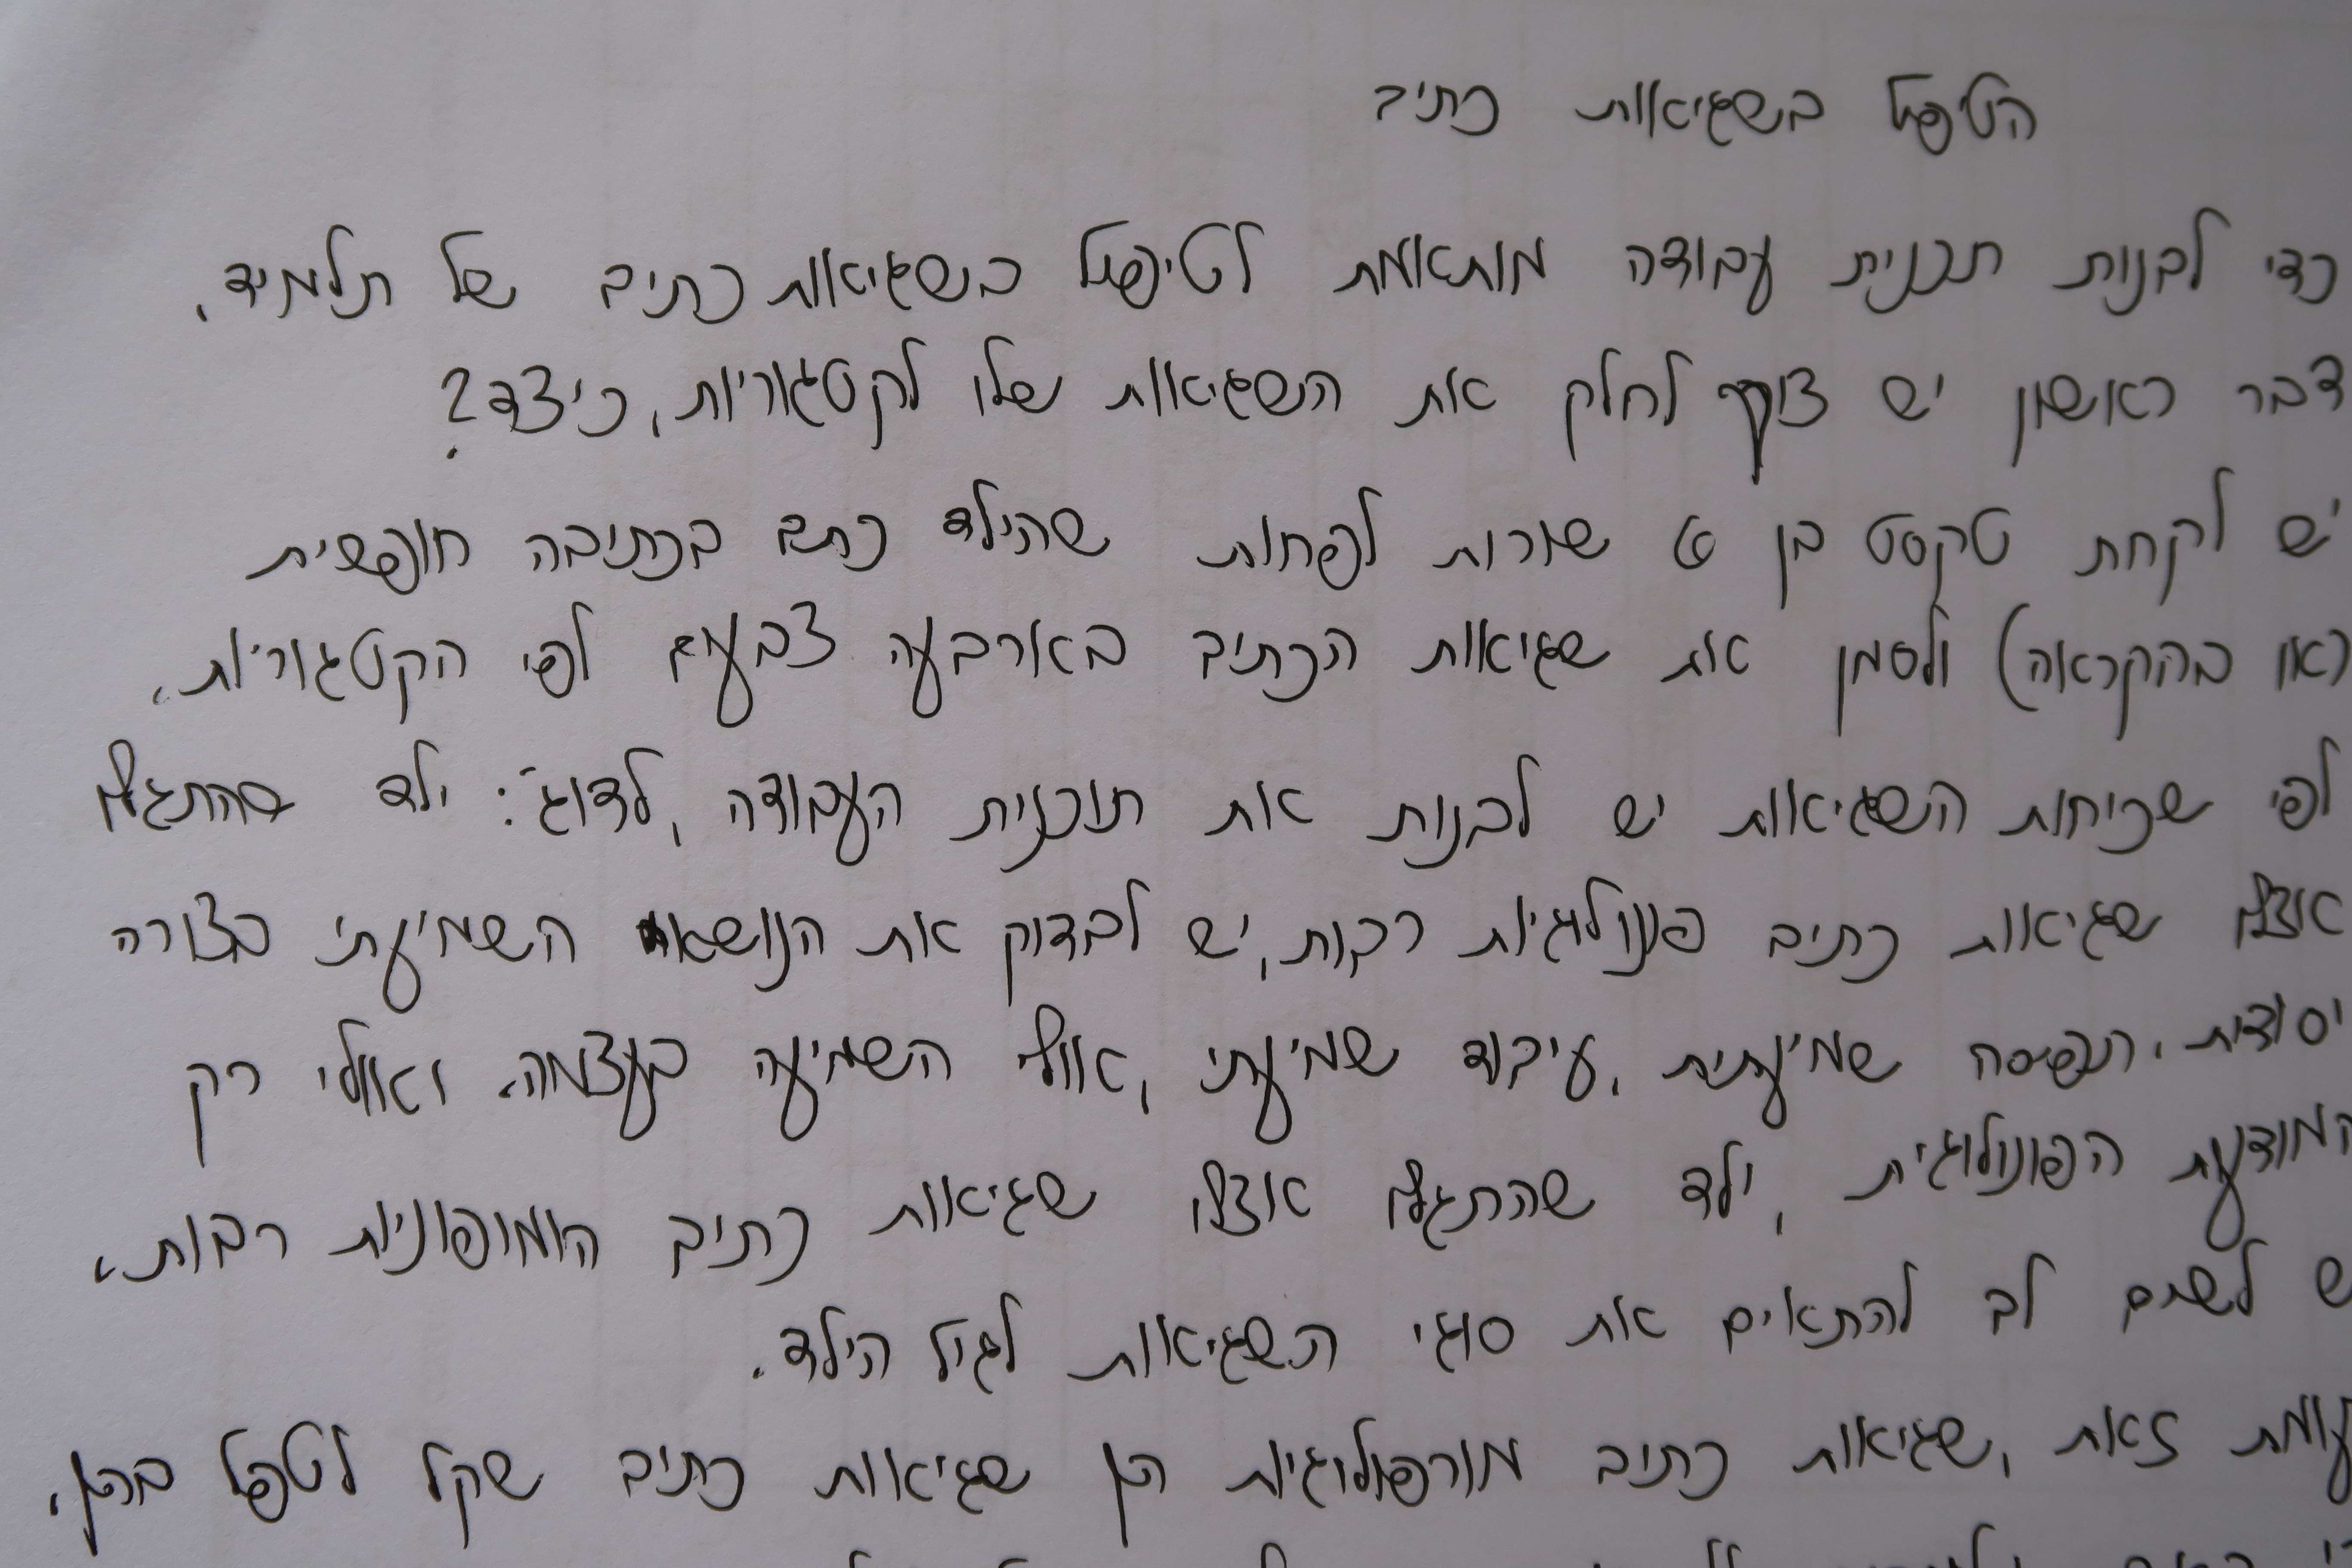 הטיפול בשגיאות כתיב
כדי לבנות תכנית עבודה מותאמת לטיפול בשגיאות כתיב של תלמיד,
דבר ראשון יש צורך לחלק את השגיאות שלו לקטגוריות, כיצד?
יש לקחת טקסט בן 6 שורות לפחות שהילד כתב בכתיבה חופשית
(או בהקראה) ולסמן את שגיאות הכתיב בארבעה צבעים לפי הקטגוריות.
לפי שכיחות השגיאות יש לבנות את תוכנית העבודה, לדוג': ילד שהתגלו
אצלו שגיאות כתיב פנולוגיות רבות, יש לבדוק את הנושא השמיעתי בצורה
יסודית. תפיסה שמיעתית, עיבוד שמיעתי, אולי השמיעה בעצמה. ואולי רק
המודעות הפונולוגית, ילד שהתגלו אצלו שגיאות כתיב הומופוניות רבות,
ש לשים לב להתאים את סוגי השגיאות לגיל הילד.
עומת זאת, שגיאות כתיב מורפולוגיות הן שגיאות כתיב שקל לטפל בהן,